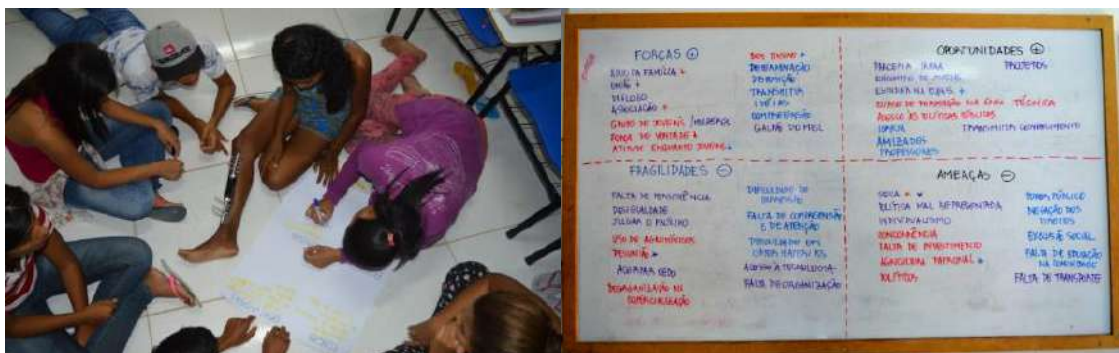 FORÇAS +
APOIO DA FAMÍLIA +
UNIÃO +
DIÁLOGO
ASSOCIAÇÃO +
GRUPO DE JOVENS / MULHERES
FORÇA DE VONTADE +
ATITUDE ENQUANTO JOVENS
DETERMINAÇÃO
TRANSMITIR
IDÉIAS
COMPREENSÃO
GALPÃO DO MEL
OPORTUNIDADES +
PARCERIA
PROJETOS
ENCONTRO DE
ESTUDAR NA +
CURSO DE FORMAÇÃO NA ÁREA TÉCNICA
ACESSO ÀS POLÍTICAS PÚBLICAS
TRANSMITIR CONHECIMENTO
AMIZADES
PROFESSORES
FRAGILIDADES -
FALTA DE PERSISTÊNCIA
DESIGUALDADE
JULGAR O PRÓXIMO
USO DE AGROTÓXICOS
ACORDAR CEDO
DESORGANIZAÇÃO NA
COMERCIALIZAÇÃO
DIFICULDADE DE
FALTA DE COMPREENSÃO
E DE ATENÇÃO
DIFICULDADE EM
ACESSO À TECNOLOGIA
FALTA DE ORGANIZAÇÃO
AMEAÇAS -
SECA
POLÍTICA MAL REPRESENTADA
INDIVIDUALISMO
CONCORRÊNCIA
FALTA DE INVESTIMENTO
AGRICULTURA PATRONAL
POLÍTICOS
PODER PÚBLICO
NEGAÇÃO DOS
DIREITOS
EXCLUSÃO SOCIAL
FALTA DE EDUCAÇÃO
NA COMUNIDADE
FALTA DE TRANSPORTE